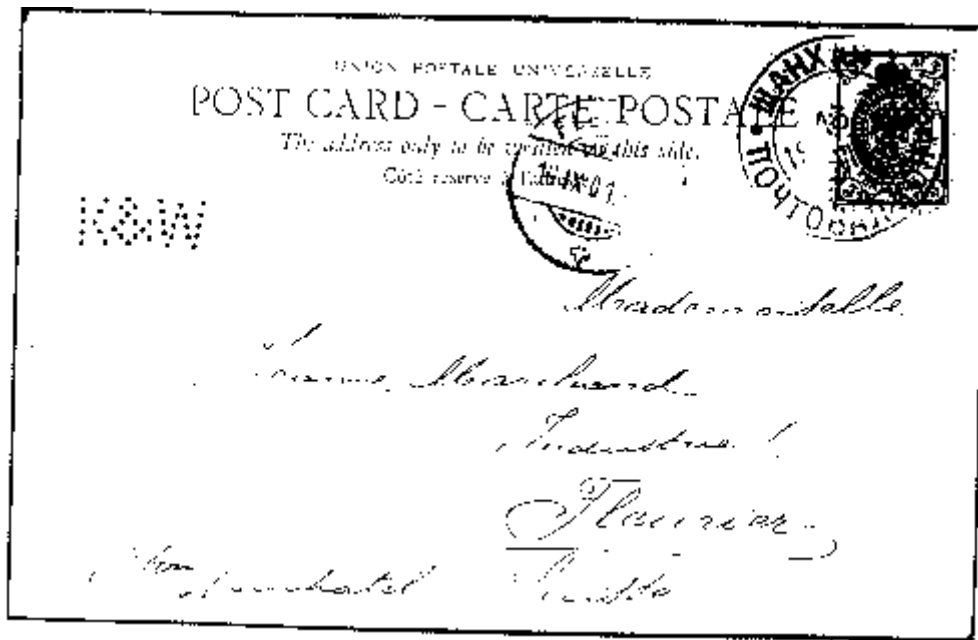 UNION POSTALE UNIVERSELLE
POST CARD - CARTE POSTALE
The address only to be written on this side.
Côté reservé à
ШАНХ
ПОЧТО
IX 01
K&W
Mademoiselle
Marchand
Industrie 1
Fleurier
Neuchatel Suisse